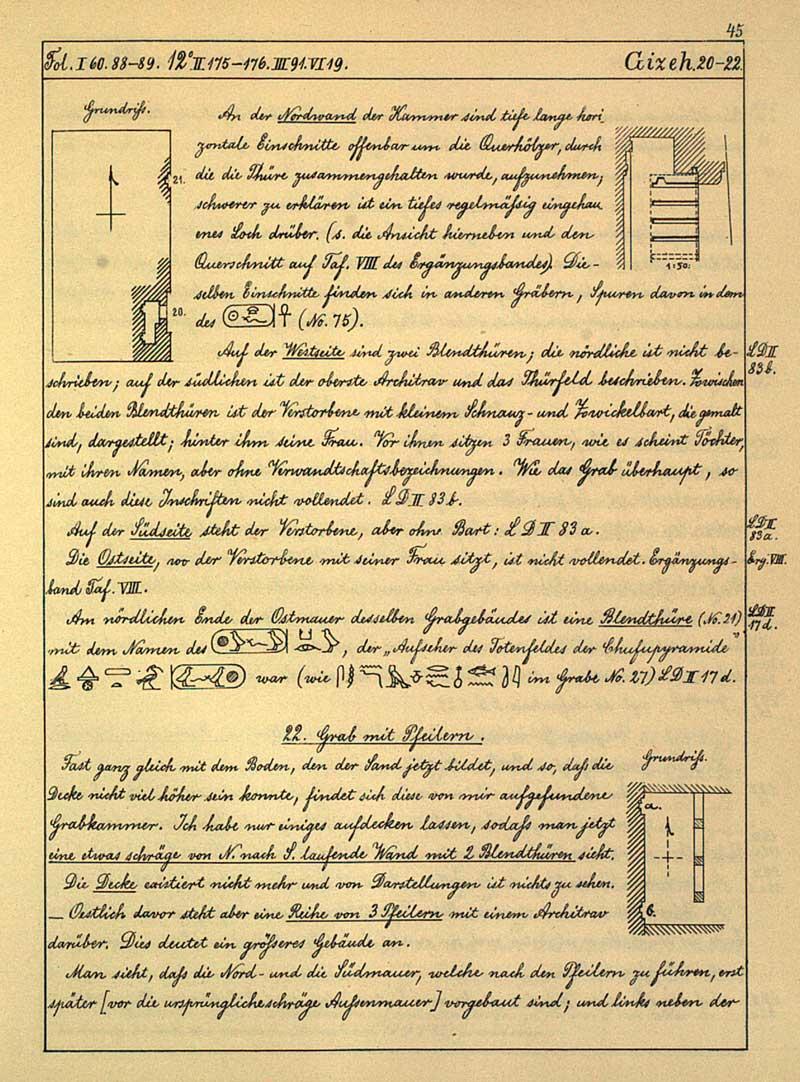 45
Fol. I 60. 88–89. 12° II 175–176. III 91. VI 19.
Gizeh. 20–22.
Grundriſs.
21.
20.
An der Nordwand der Kammer sind tiefe lange hori
zontale Einschnitte offenbar um die Querhölzer, durch
die die Thüre zusammengehalten wurde, aufzunehmen;
schwerer zu erklären ist ein tiefes regelmäſsig eingehau
enes Loch drüber. (s. die Ansicht hierneben und den
Querschnitt auf Taf. VIII des Ergänzungsbandes). Die-
1:50.
selben Einschnitte finden sich in anderen Gräbern, Spuren davon in dem
des (No. 75).
Auf der Westseite sind zwei Blendthüren; die nördliche ist nicht be-
LD II
83 b.
schrieben; auf der südlichen ist der oberste Architrav und das Thürfeld beschrieben. Zwischen
den beiden Blendthüren ist der Verstorbene mit kleinem Schnauz- und Zwickelbart, die gemalt
sind, dargestellt; hinter ihm seine Frau. Vor ihnen sitzen 3 Frauen, wie es scheint Töchter,
mit ihren Namen, aber ohne Verwandtschaftsbezeichnungen. Wie das Grab überhaupt, so
sind auch diese Inschriften nicht vollendet. LD II 83 b.
Auf der Südseite steht der Verstorbene, aber ohne Bart: LD II 83 a.
LD II
83 a.
Die Ostseite, wo der Verstorbene mit seiner Frau sitzt, ist nicht vollendet. Ergänzungs-
Erg. VIII.
band Taf. VIII.
Am nördlichen Ende der Ostmauer desselben Grabgebäudes ist eine Blendthüre (No. 21)
LD II
17 d.
mit dem Namen des , der „Aufseher des Totenfeldes der Chufupyramide"
war (wie im Grabe No. 27) LD II 17 d.
22. Grab mit Pfeilern.
Fast ganz gleich mit dem Boden, den der Sand jetzt bildet, und so, daſs die
Decke nicht viel höher sein konnte, findet sich diese von mir aufgefundene
Grabkammer. Ich habe nur einiges aufdecken lassen, sodaſs man jetzt
eine etwas schräge von N. nach S. laufende Wand mit 2 Blendthüren sieht.
Die Decke existiert nicht mehr und von Darstellungen ist nichts zu sehen.
— Oestlich davor steht aber eine Reihe von 3 Pfeilern mit einem Architrav
darüber. Dies deutet ein gröſseres Gebäude an.
Grundriſs.
a.
b.
Man sieht, daſs die Nord- und die Südmauer, welche nach den Pfeilern zu führen, erst
später [vor die ursprüngliche schräge Auſsenmauer] vorgebaut sind; und links neben der